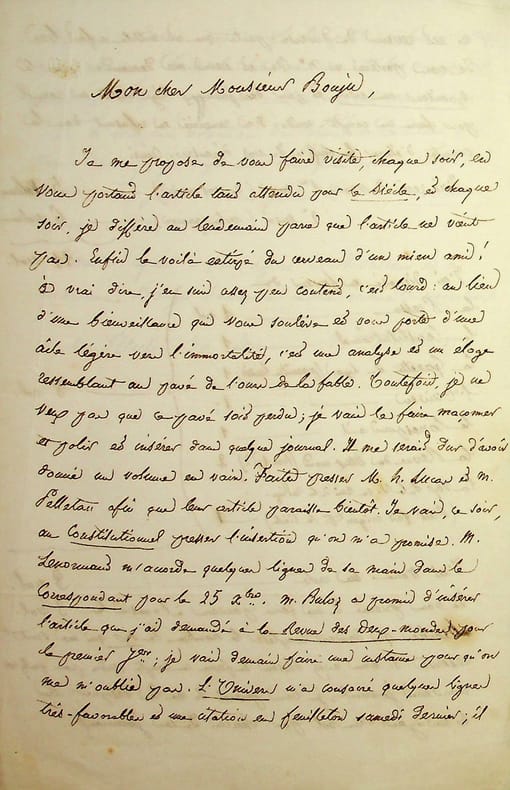 Mon cher Monsieur Bouju,
Je me propose de vous faire visite, chaque soir, en
vous portant l'article tant attendu pour le Siècle, et chaque
soir, je diffère au lendemain parce que l'article ne vient
pas. Enfin le voilà extirpé du cerveau d'un mien ami!
à vrai dire, j'en suis assez peu content, c'est lourd: au lieu
d'une bienveillance qui vous soulève et vous porte d'une
aile légère vers l'immortalité, c'est une analyse et un éloge
ressemblant au pavé de l'ours de la fable. Toutefois, je ne
veux pas que ce pavé soit perdu; je vais le faire maçonner
et polir et insérer dans quelque journal. Il me serait dur d'avoir
donné un volume en vain. Faites presser M. h. Lucas et M.
Pelletan afin que leur article paraisse bientôt. Je vais, ce soir,
au Constitutionnel presser l'insertion qu'on m'a promise. M.
Lenormand m'accorde quelques lignes de sa main dans le
Correspondant pour le 25 Xbre. M. Buloz a promis d'insérer
l'article que j'ai demandé à la Revue des Deux-mondes pour
le premier Jer; je vais demain faire une instance pour qu'on
ne m'oublie pas. L'Univers m'a consacré quelques lignes
très-favorables et une citation en feuilleton samedi dernier; il